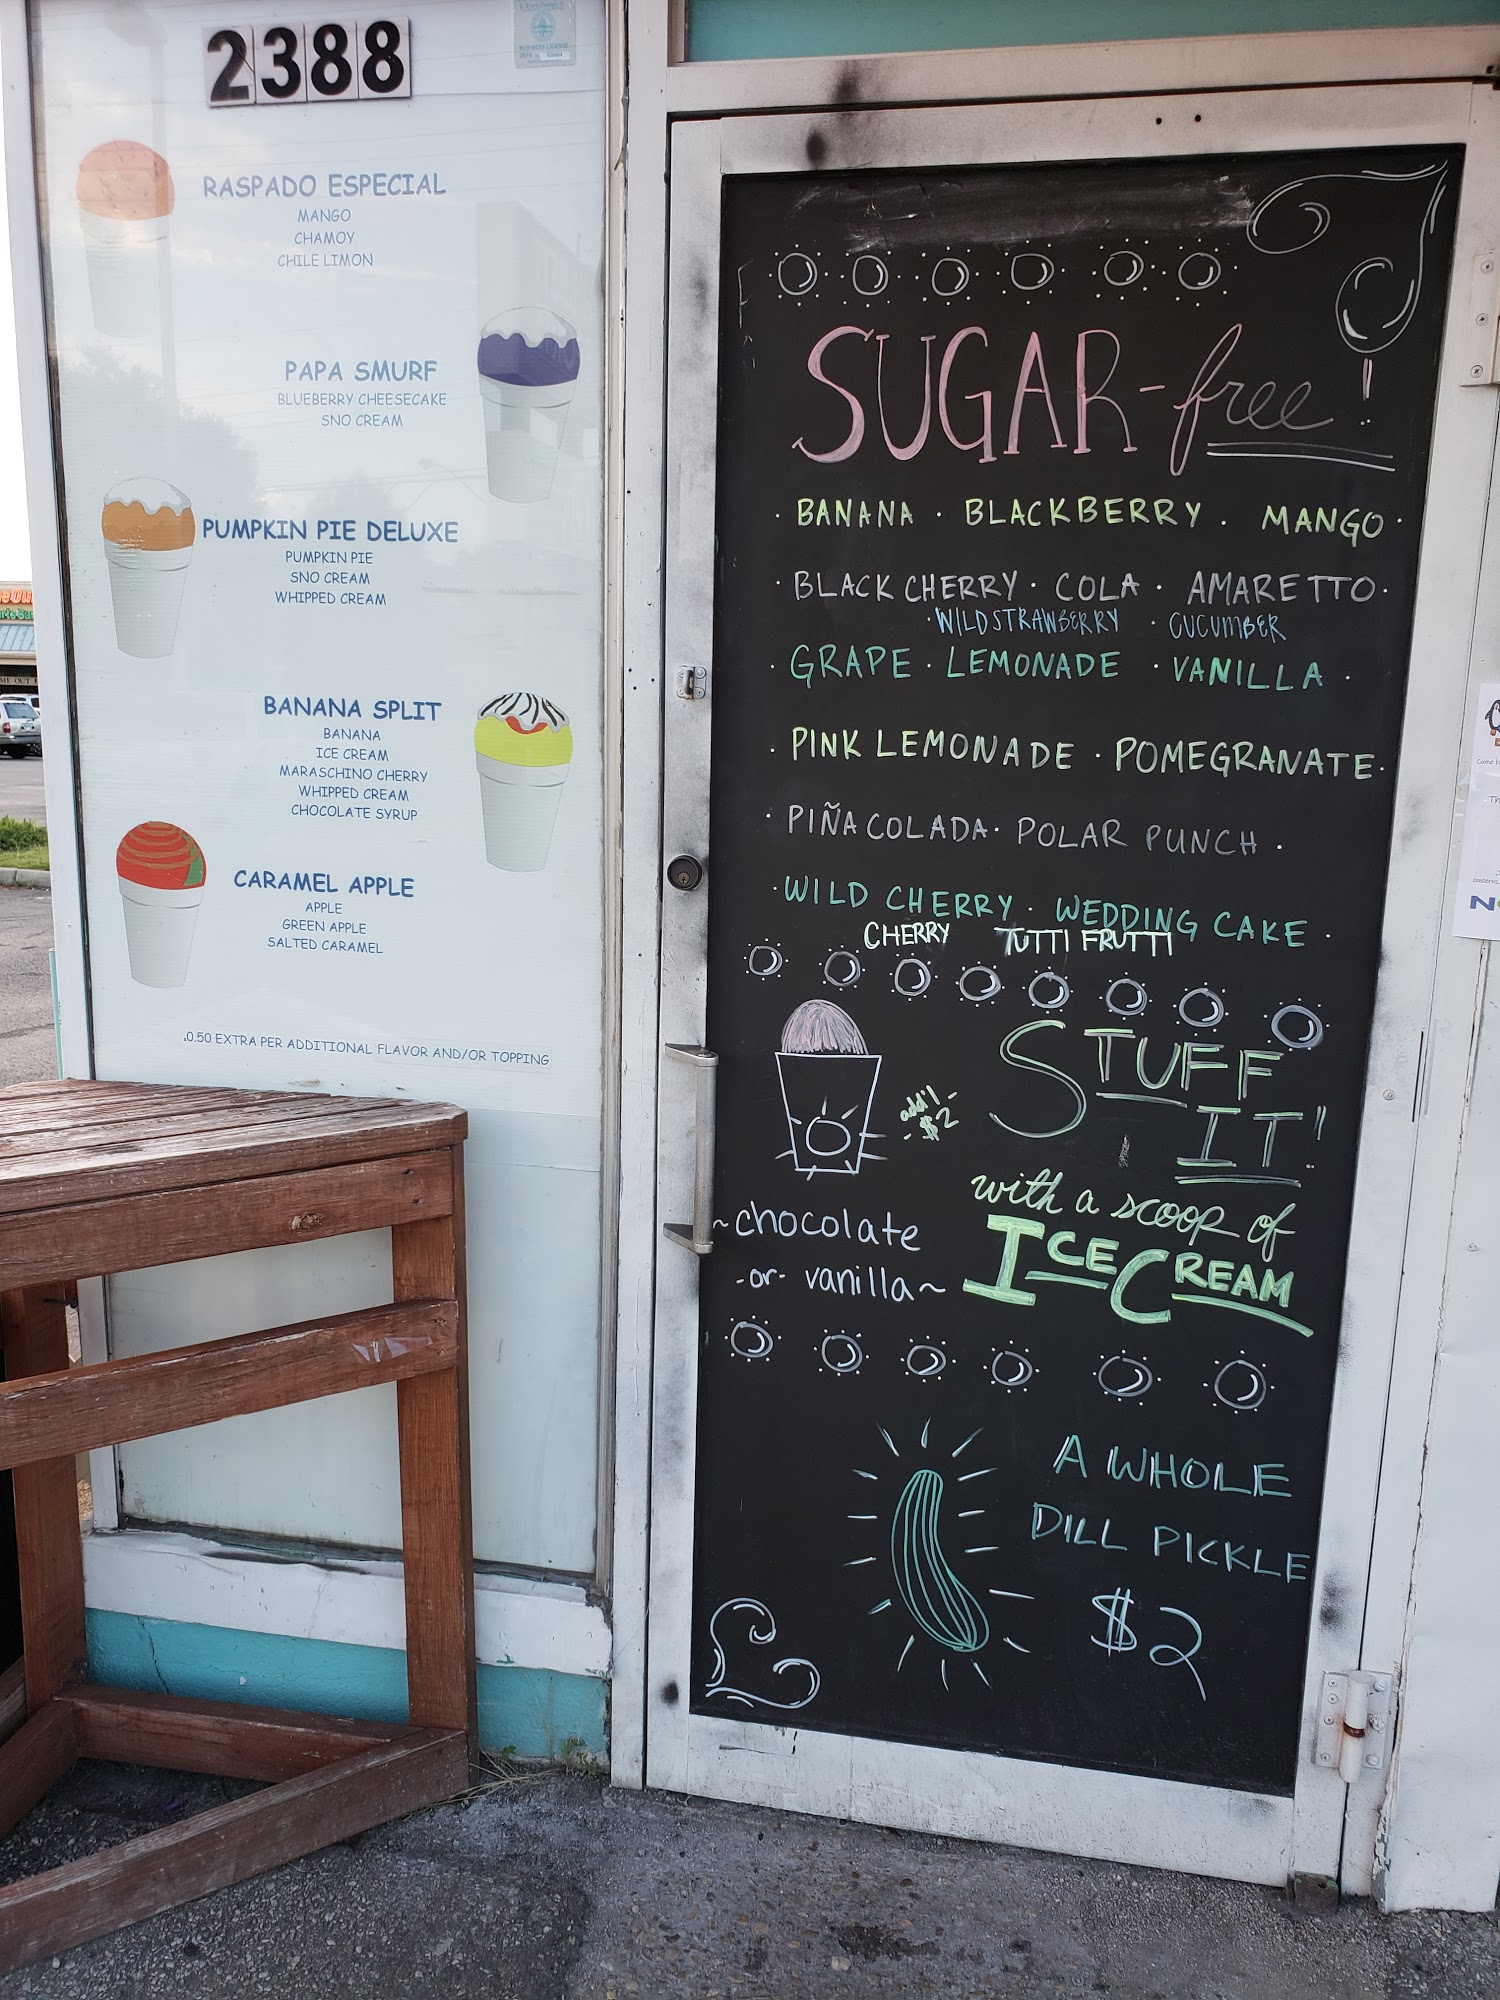 2388
BUSINESS LICENSE
RASPADO ESPECIAL
MANGO
CHAMOY
CHILE LIMON
PAPA SMURF
BLUEBERRY CHEESECAKE
SNO CREAM
PUMPKIN PIE DELUXE
PUMPKIN PIE
SNO CREAM
WHIPPED CREAM
BANANA SPLIT
BANANA
ICE CREAM
MARASCHINO CHERRY
WHIPPED CREAM
CHOCOLATE SYRUP
CARAMEL APPLE
APPLE
GREEN APPLE
SALTED CARAMEL
.0.50 EXTRA PER ADDITIONAL FLAVOR AND/OR TOPPING
SUGAR-free!
· BANANA · BLACKBERRY · MANGO ·
· BLACK CHERRY · COLA · AMARETTO ·
· WILD STRAWBERRY · CUCUMBER
· GRAPE · LEMONADE · VANILLA ·
· PINK LEMONADE · POMEGRANATE ·
· PIÑA COLADA · POLAR PUNCH ·
· WILD CHERRY · WEDDING CAKE ·
CHERRY TUTTI FRUTTI
STUFF
IT!
add'l -
- $2
with a scoop of
ICE CREAM
~chocolate
-or- vanilla~
A WHOLE
DILL PICKLE
$2